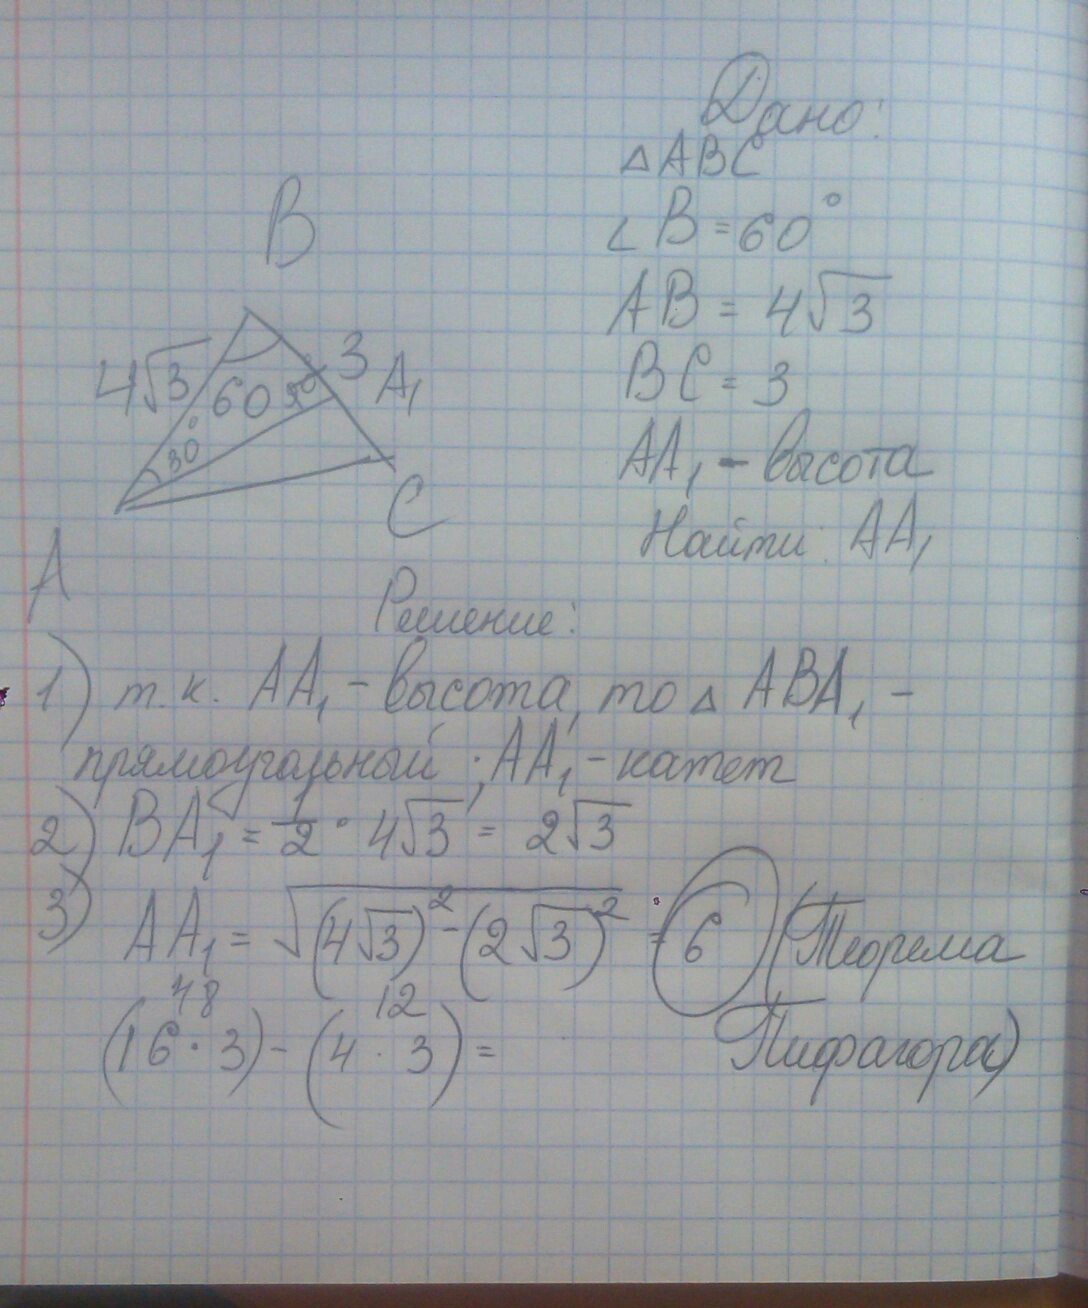 Дано:
△ABC
∠B = 60°
AB = 4√3
BC = 3
AA₁ - высота
Найти: AA₁
B
4√3
60
90°
3
A₁
30°
C
A
Решение:
1) т.к. AA₁ - высота, то △ ABA₁ -
прямоугольный; AA₁ - катет
2) BA₁ = 1/2 · 4√3 = 2√3
3) AA₁ = √(4√3)² - (2√3)² = 6 (Теорема
Пифагора)
48 12
(16 · 3) - (4 · 3) =